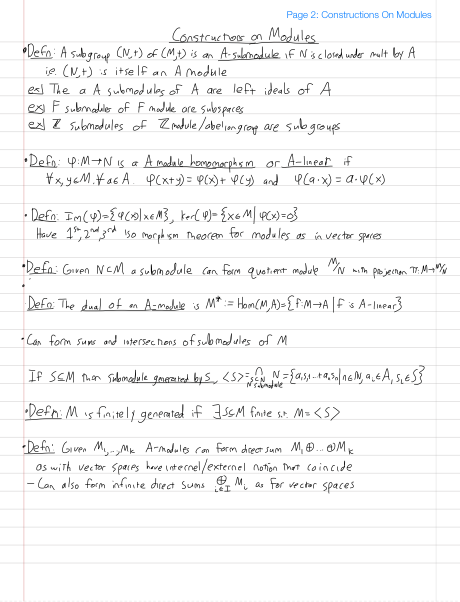 Page 2: Constructions On Modules
Constructions on Modules
• Defn: A subgroup (N,+) of (M,+) is an A-submodule if N is closed under mult by A
i.e. (N,+) is itself an A module
ex) The a A submodules of A are left ideals of A
ex) F submodules of F module are subspaces
ex) ℤ submodules of ℤ module/abelian group are subgroups
• Defn: φ: M→N is a A module homomorphism or A-linear if
∀x,y∈M, ∀a∈A. φ(x+y)=φ(x)+φ(y) and φ(a·x)=a·φ(x)
• Defn: Im(φ)={φ(x)|x∈M}, ker(φ)={x∈M|φ(x)=0}
Have 1st, 2nd, 3rd isomorphism theorem for modules as in vector spaces
• Defn: Given N⊂M a submodule can form quotient module M/N with projection π: M→M/N
•
Defn: The dual of an A-module is M* := Hom(M,A)={f:M→A | f is A-linear}
• Can form sums and intersections of submodules of M
If S⊆M then submodule generated by S, <S>=∩ N={a₁s₁+..+aₙsₙ|n∈ℕ, aᵢ∈A, sᵢ∈S}
S⊆N
N submodule
• Defn: M is finitely generated if ∃S⊆M finite s.t. M=<S>
• Defn: Given M₁,...,Mk A-modules can form direct sum M₁⊕...⊕Mk
as with vector spaces have internel/external notion that coincide
- Can also form infinite direct sums ⊕ Mᵢ as for vector spaces
i∈I